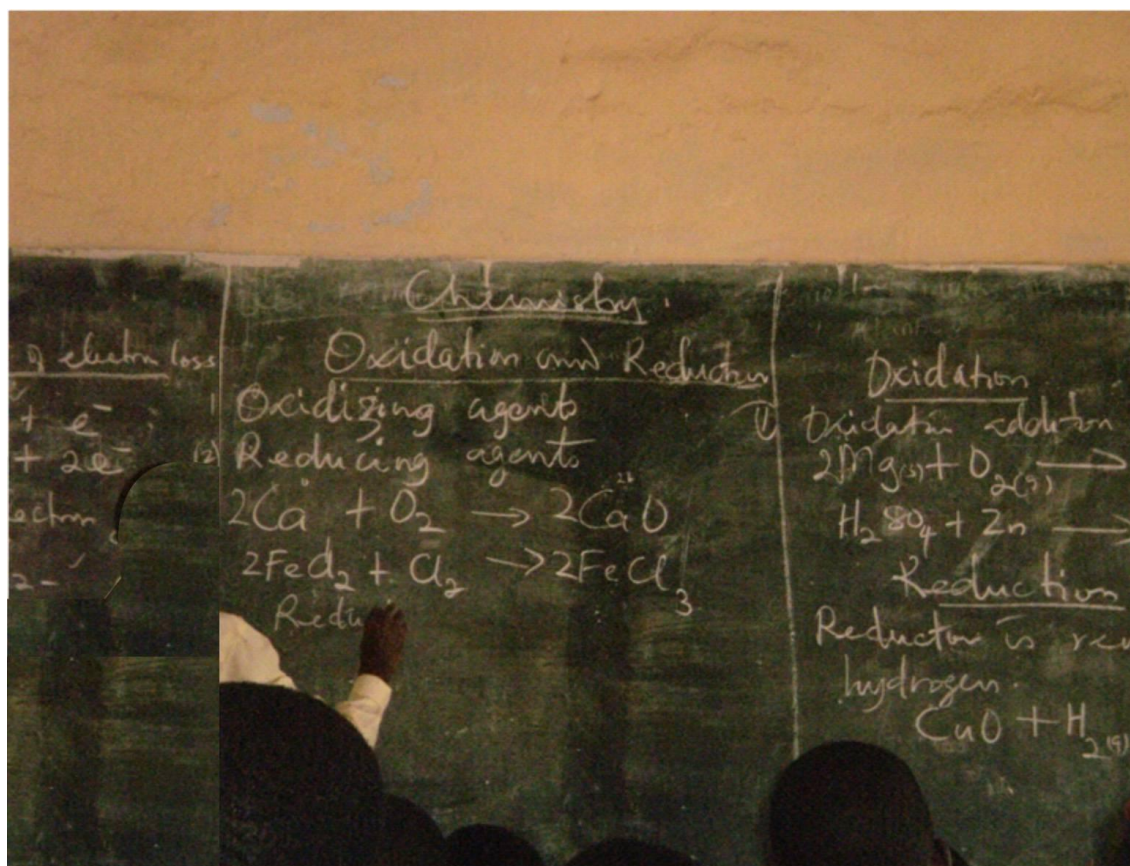 of electron loss
+ e⁻
+ 2e⁻
ectron
2-
Chemistry.
Oxidation and Reduction
1 Oxidizing agents
(2) Reducing agents
2Ca + O₂ → 2CaO
2FeCl₂ + Cl₂ → 2FeCl₃
Redu
Oxidation
① Oxidation addition
2Mg(s) + O₂(g) →
H₂SO₄ + Zn →
Reduction
Reduction is
hydrogen.
CuO + H₂(g)